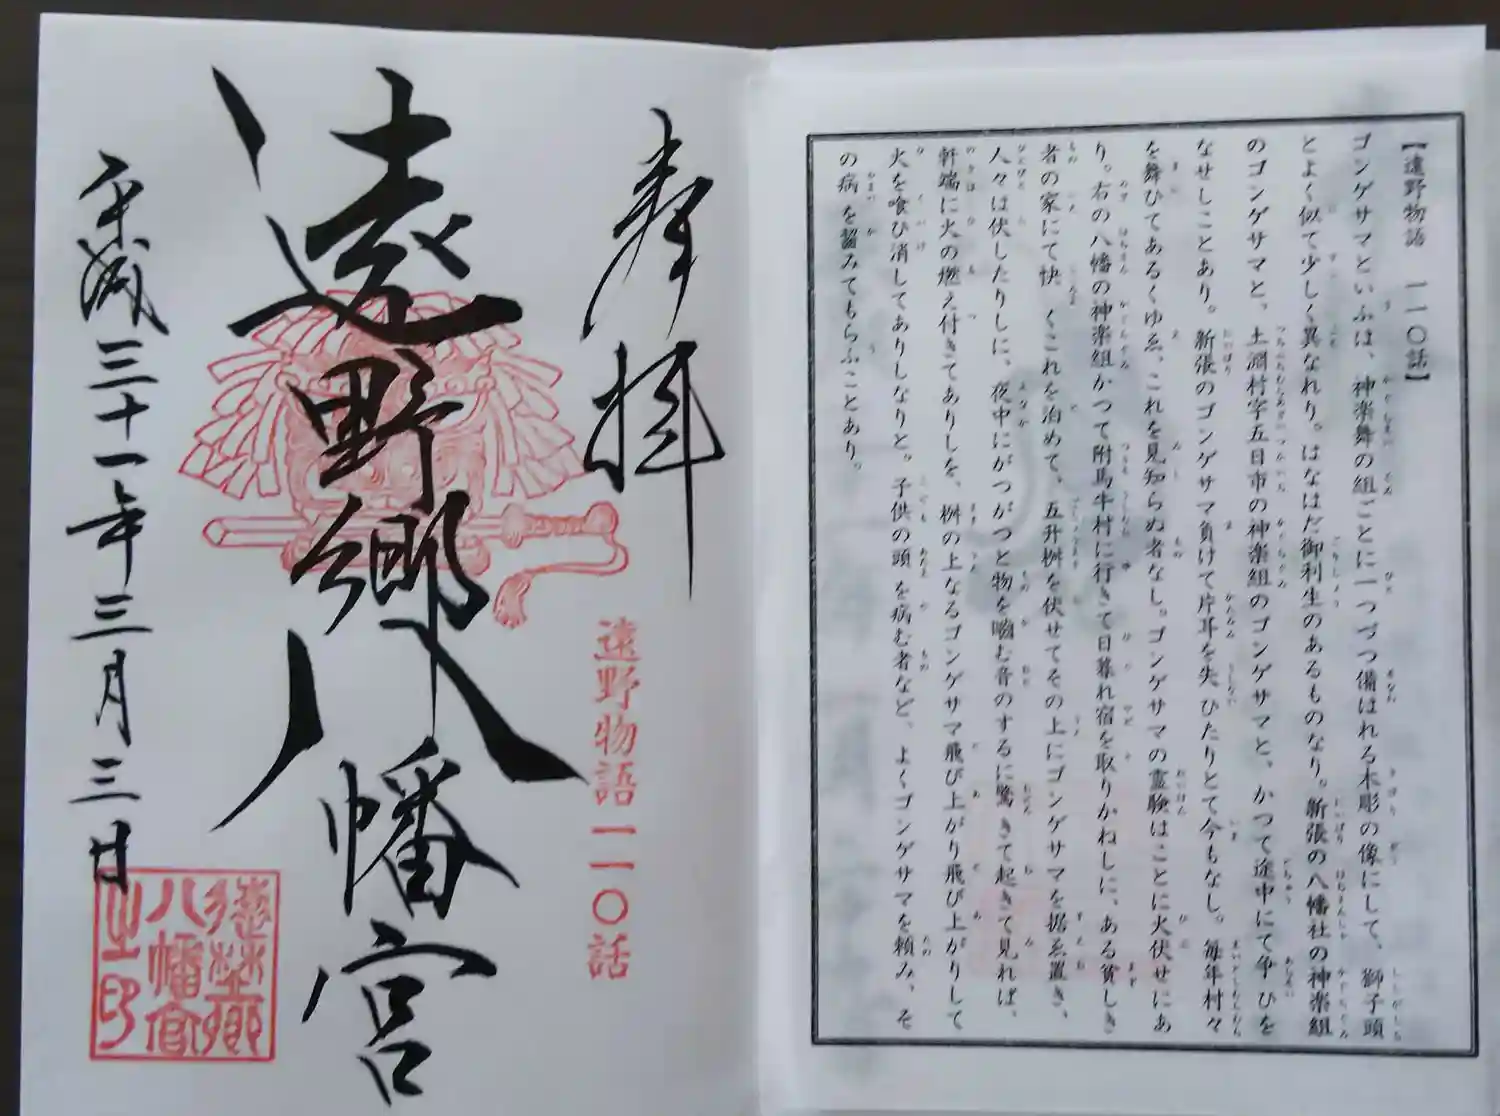 【遠野物語　一一〇話】
ゴンゲサマといふは、神楽舞の組ごとに一つづつ備はれる木彫の像にして、獅子頭
とよく似て少しく異なれり。はなはだ御利生のあるものなり。新張の八幡社の神楽組
のゴンゲサマと、土淵村字五日市の神楽組のゴンゲサマと、かつて途中にて争ひを
なせしことあり。新張のゴンゲサマ負けて片耳を失ひたりとて今もなし。毎年村々
を舞ひてあるくゆゑ、これを見知らぬ者なし。ゴンゲサマの霊験はことに火伏せにあ
り。右の八幡の神楽組かつて附馬牛村に行きて日暮れ宿を取りかねしに、ある貧しき
者の家にて快くこれを泊めて、五升桝を伏せてその上にゴンゲサマを据ゑ置き、
人々は伏したりしに、夜中にがつがつと物を嚙む音のするに驚きて起きて見れば、
軒端に火の燃え付きてありしを、桝の上なるゴンゲサマ飛び上がり飛び上がりして
火を喰ひ消してありしなりと。子供の頭を病む者など、よくゴンゲサマを頼み、そ
の病を齧みてもらふことあり。
奉拝
遠野物語一一〇話
遠野郷八幡宮
平成三十一年三月三日
遠野郷
八幡宮
之印